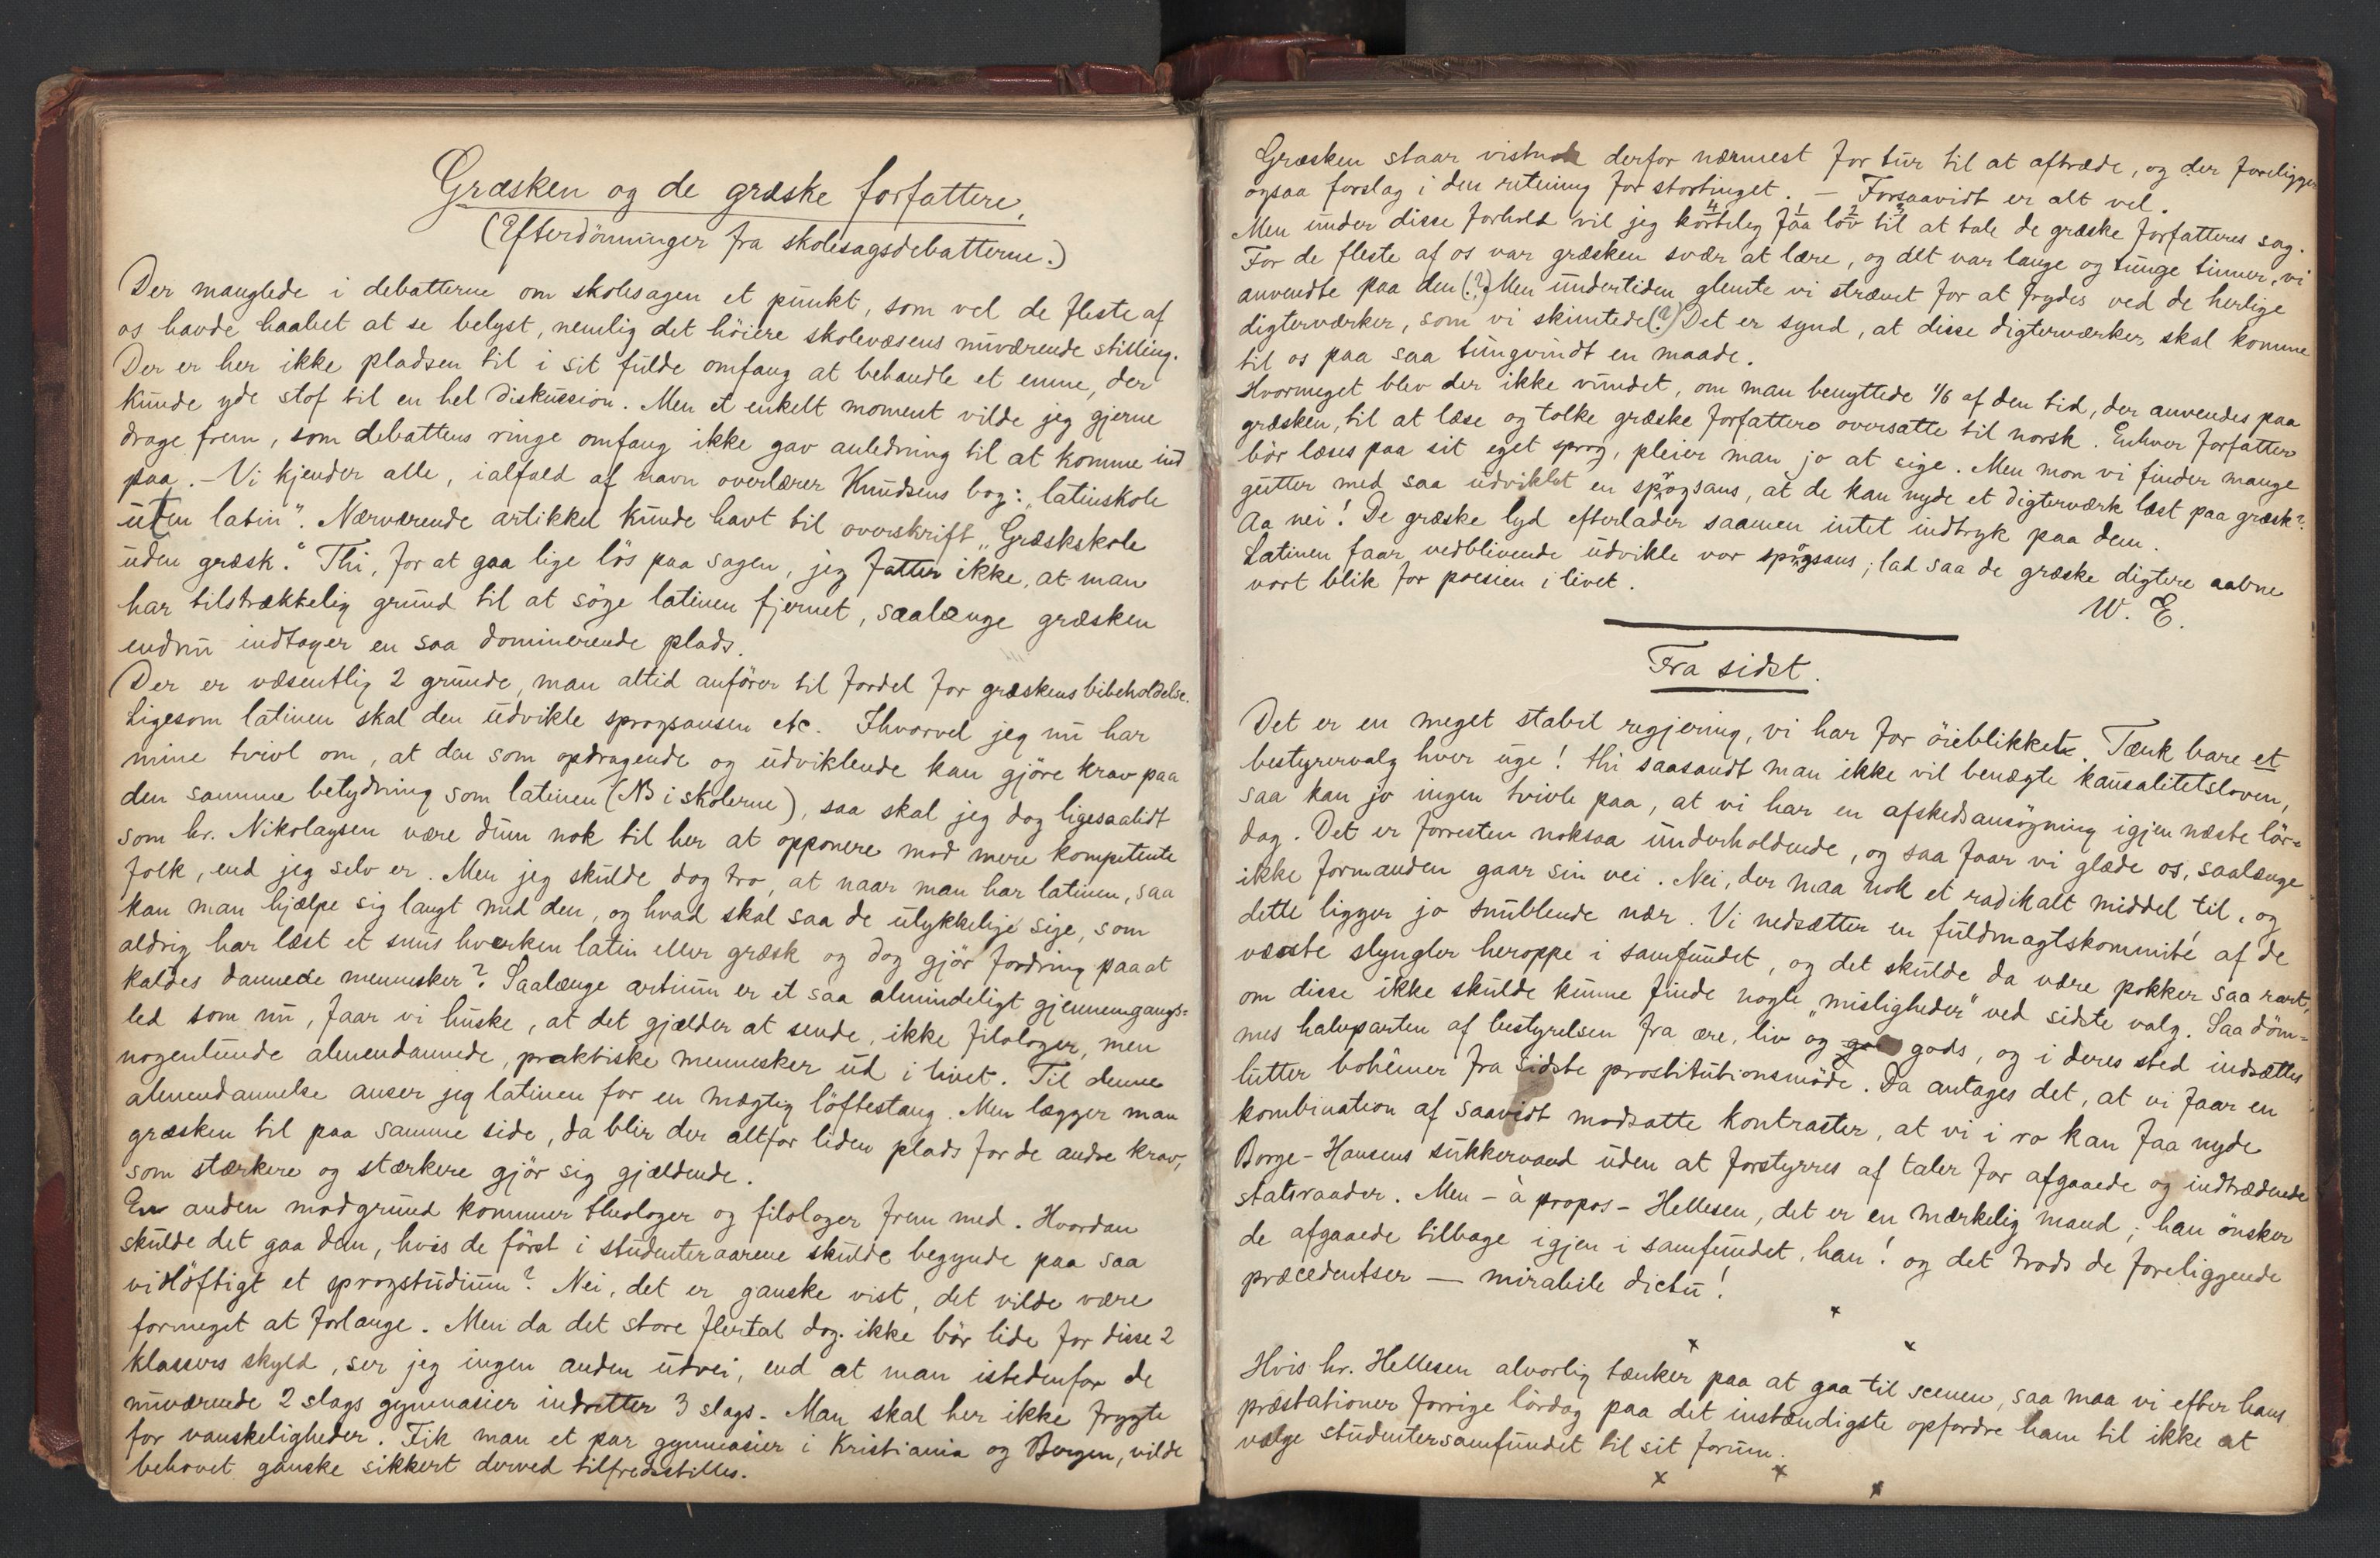 Græsken og de græske forfattere,
(Efterdönninger fra skolesagsdebatterne.)
Der manglede i debatterne om skolesagen et punkt, som vel de fleste af
os havde haabet at se belyst, nemlig det höiere skolevæsens nuværende stilling.
Der er her ikke pladsen til i sit fulde omfang at behandle et emne, der
kunde yde stof til en hel diskussion. Men et enkelt moment vilde jeg gjerne
drage frem, som debattens ringe omfang ikke gav anledning til at komme ind
paa. - Vi kjender alle, ialfald af navn overlærer Knudsens bog: „latinskole
uten latin“. Nærværende artikkel kunde havt til overskrift „Græskskole
uden græsk.“ Thi, for at gaa lige lös paa sagen, jeg fatter ikke, at man
har tilstrækkelig grund til at söge latinen fjernet, saalænge græsken
endnu indtager en saa dominerende plads.
Der er væsentlig 2 grunde, man altid anförer til fordel for græskens bibeholdelse.
Ligesom latinen skal den udvikle sprogsansen etc. Ihvorvel jeg nu har
mine tvivl om, at den som opdragende og udviklende kan gjöre krav paa
den samme betydning som latinen (NB i skolerne), saa skal jeg dog ligesaalidt
som hr. Nikolaysen være dum nok til her at opponere mod mere kompetente
folk, end jeg selv er. Men jeg skulde dog tro, at naar man har latinen, saa
kan man hjælpe sig langt med den, og hvad skal saa de ulykkelige sige, som
aldrig har læst et snus hverken latin eller græsk og dog gjör fordring paa at
kaldes dannede mennesker? Saalænge artium er et saa almindeligt gjennemgangs=
led som nu, faar vi huske, at det gjælder at sende, ikke filologer, men
nogenlunde almendannede, praktiske mennesker ud i livet. Til denne
almendannelse anser jeg latinen for en mægtig löftestang. Men lægger man
græsken til paa samme side, da blir der altfor liden plads for de andre krav,
som stærkere og stærkere gjör sig gjældende.
En anden modgrund kommer theologer og filologer frem med. Hvordan
skulde det gaa dem, hvis de först i studenteraarene skulde begynde paa saa
vidtlöftigt et sprogstudium? Nei, det er ganske vist, det vilde være
formeget at forlange. Men da det store flertal dog. ikke bör lide for disse 2
klassers skyld, ser jeg ingen anden udvei, end at man istedenfor de
nuværende 2 slags gymnasier indretter 3 slags. Man skal her ikke frygte
for vanskeligheder. Fik man et par gymnasier i Kristiania og Bergen, vilde
behovet ganske sikkert derved tilfredsstilles.
Græsken staar vistnok derfor nærmest for tur til at aftræde, og der foreligger
ogsaa forslag i den retning for stortinget. — Forsaavidt er alt vel.
Men under disse forhold vil jeg kortelig faa lov til at tale de græske forfatteres sag.
For de fleste af os var græsken svær at lære, og det var lange og tunge timer, vi
anvendte paa den (?) Men undertiden glemte vi strævet for at frydes ved de herlige
digterværker, som vi skimtede (?) Det er synd, at disse digterværker skal komme
til os paa saa tungvindt en maade.
Hvormeget blev der ikke vundet, om man benyttede 1/6 af den tid, der anvendes paa
græsken, til at læse og tolke græske forfattere oversatte til norsk. Enhver forfatter
bör læses paa sit eget sprog, pleier man jo at sige. Men mon vi finder mange
gutter med saa udviklet en sprogsans, at de kan nyde et digterværk læst paa græsk?
Aa nei! De græske lyd efterlader saamen intet indtryk paa dem.
Latinen faar vedblivende udvikle vor sprogsans; lad saa de græske digtere aabne
vort blik for poesien i livet.
W. E.
Fra sidst.
Det er en meget stabil regjering, vi har for öieblikket. Tænk bare et
bestyrervalg hver uge! thi saasandt man ikke vil benægte kausalitetsloven,
saa kan jo ingen tvivle paa, at vi har en afskedsansögning igjen næste lör=
dag. Det er forresten noksaa underholdende, og saa faar vi glæde os, saalænge
ikke formanden gaar sin vei. Nei, der maa nok et radikalt middel til, og
dette ligger jo snublende nær. Vi nedsætter en fuldmagtskommité af de
værste slyngler heroppe i samfundet, og det skulde da være pokker saa rart,
om disse ikke skulde kunne finde nogle „misligheder“ ved sidste valg. Saa döm=
mes halvparten af bestyrelsen fra ære, liv og gods, og i deres sted indsættes
lutter bohêmer fra sidste prostitutionsmöde. Da antages det, at vi faar en
kombination af saavidt modsatte kontraster, at vi i ro kan faa nyde
Borge-Hansens sukkervand uden at forstyrres af taler for afgaaede og indtrædende
statsraader. Men - à propos - Hellesen, det er en mærkelig mand; han önsker
de afgaaede tilbage igjen i samfundet, han! og det trods de foreliggende
præcedentser — mirabile dictu!
x
x x
Hvis hr. Hellesen alvorlig tænker paa at gaa til scenen, saa maa vi efter hans
præstationer forrige lördag paa det instændigste opfordre ham til ikke at
vælge studentersamfundet til sit forum.
x x
x